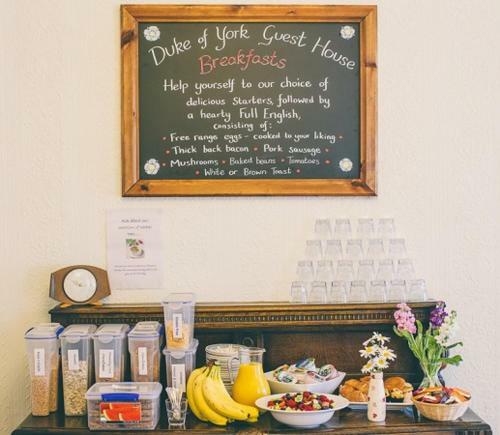 Duke of York Guest House
Breakfasts
Help yourself to our choice of
delicious Starters, followed by
a hearty Full English,
consisting of:
• Free range eggs - cooked to your liking •
• Thick back bacon • Pork sausage •
• Mushrooms • Baked beans • Tomatoes •
• White or Brown Toast •